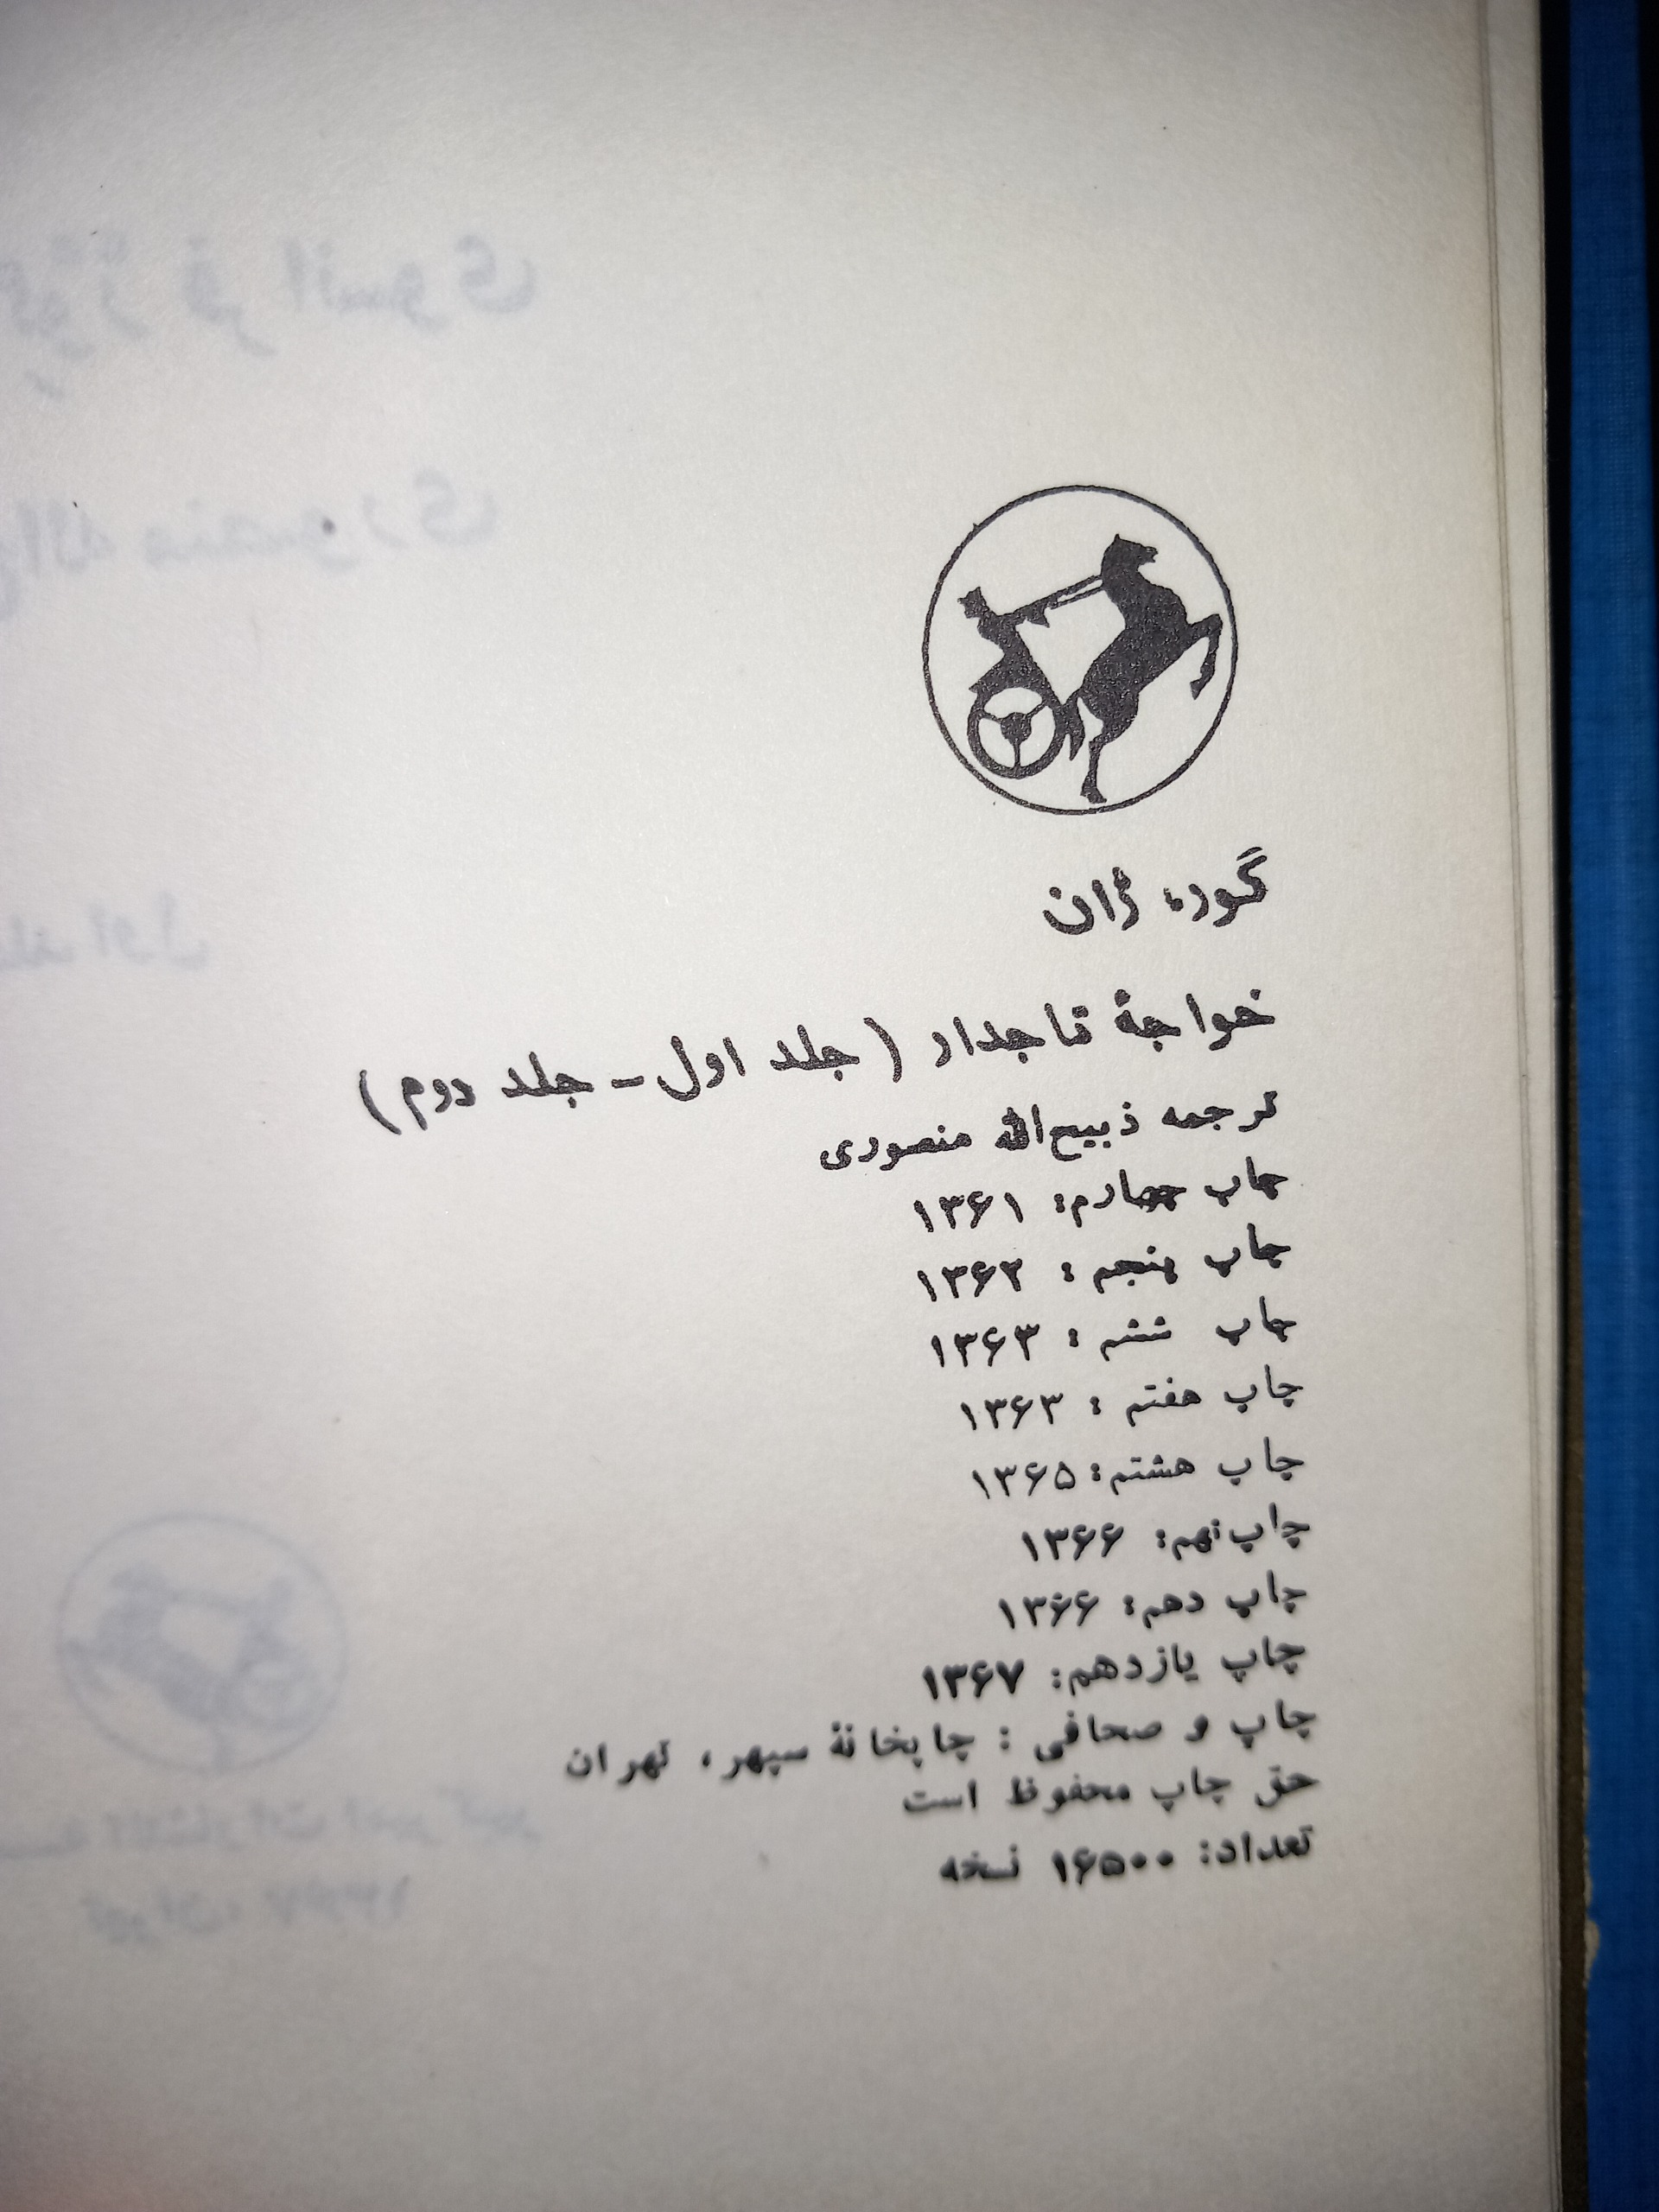 گور، ژان
خواجهٔ تاجدار (جلد اول – جلد دوم)
ترجمه ذبیح‌الله منصوری
چاپ چهارم: ۱۳۶۱
چاپ پنجم: ۱۳۶۲
چاپ ششم: ۱۳۶۳
چاپ هفتم: ۱۳۶۳
چاپ هشتم: ۱۳۶۵
چاپ نهم: ۱۳۶۶
چاپ دهم: ۱۳۶۶
چاپ یازدهم: ۱۳۶۷
چاپ و صحافی: چاپخانهٔ سپهر، تهران
حق چاپ محفوظ است
تعداد: ۱۶۵۰۰ نسخه